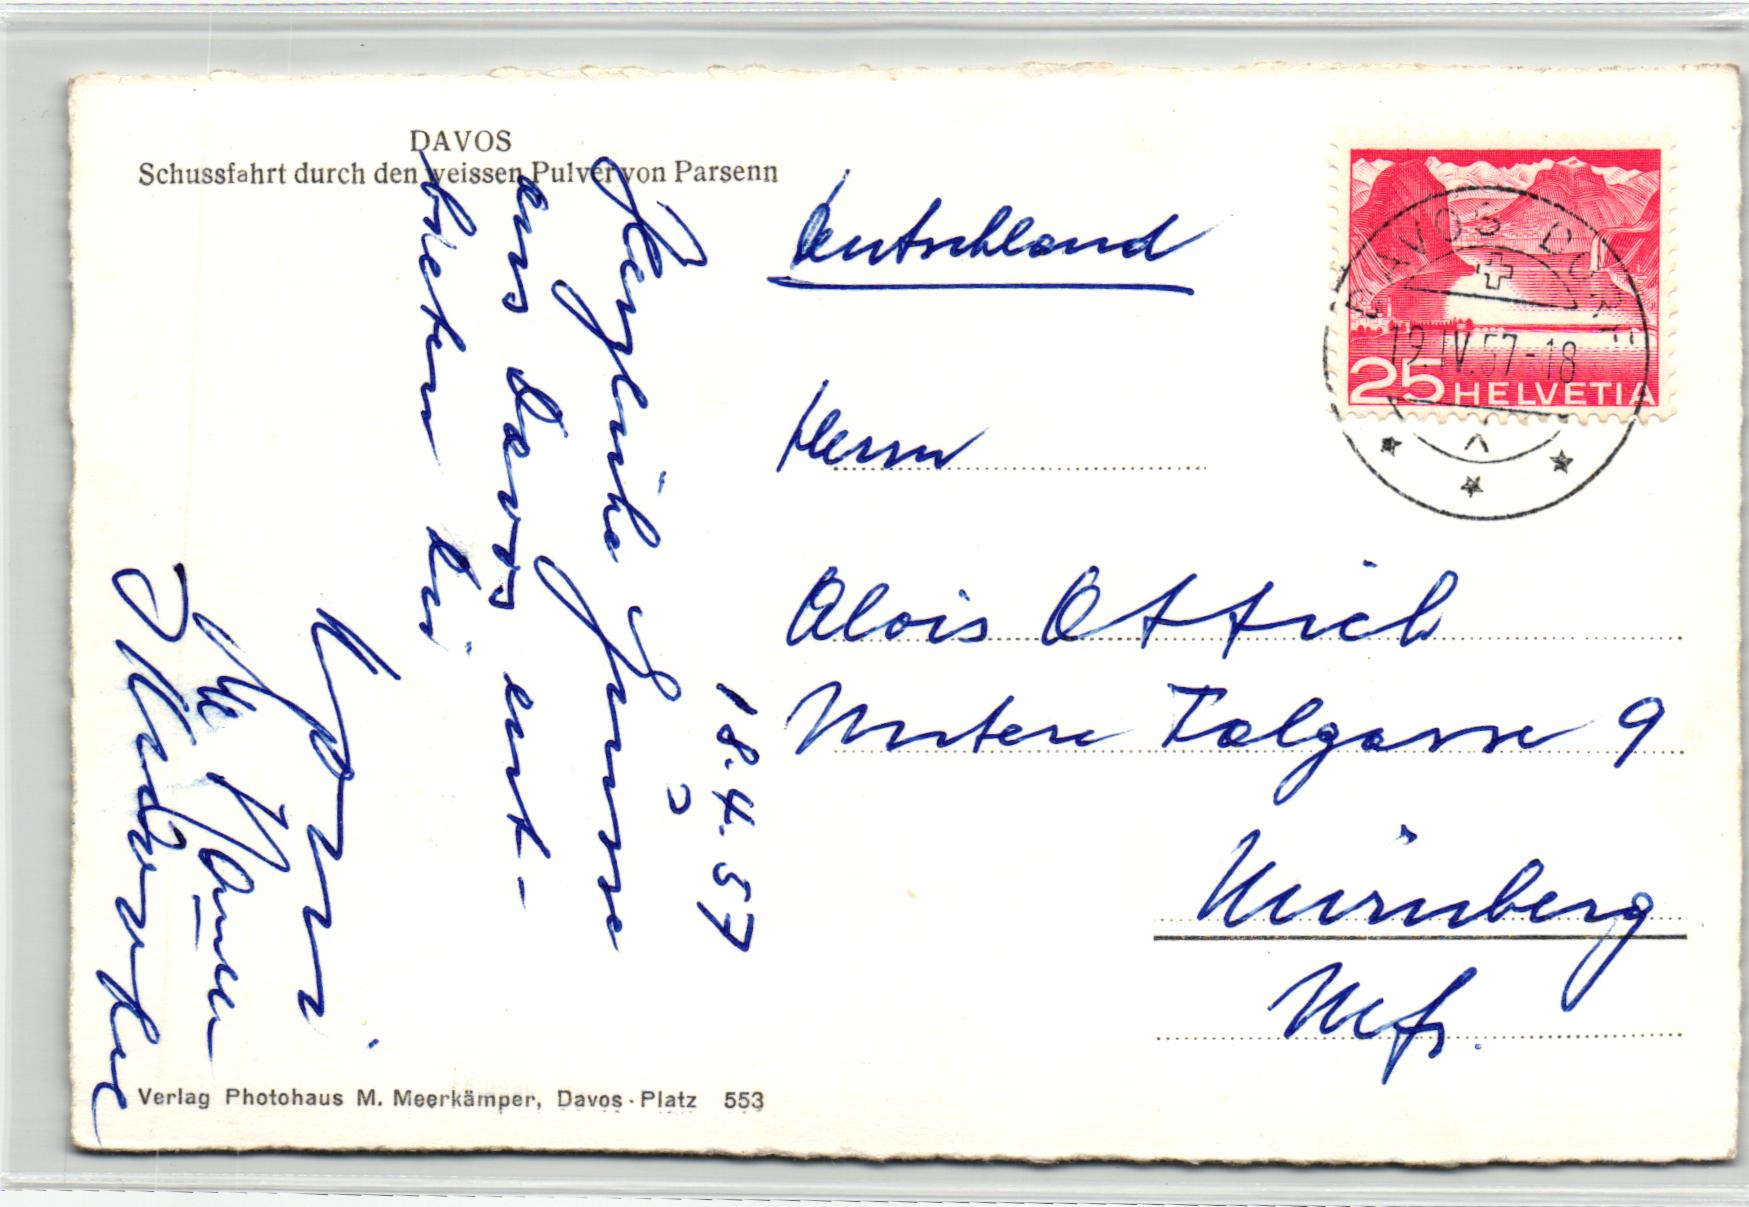 DAVOS
Schussfahrt durch den weissen Pulver von Parsenn
18.4.57
Herzliche Grüsse
aus Davos ent-
bieten
Deutschland
Herrn
Alois Ottich
Untere Talgasse 9
Nürnberg
Mfr.
DAVOS DORF
19.IV.57-18
25 HELVETIA
Verlag Photohaus M. Meerkämper, Davos-Platz 553